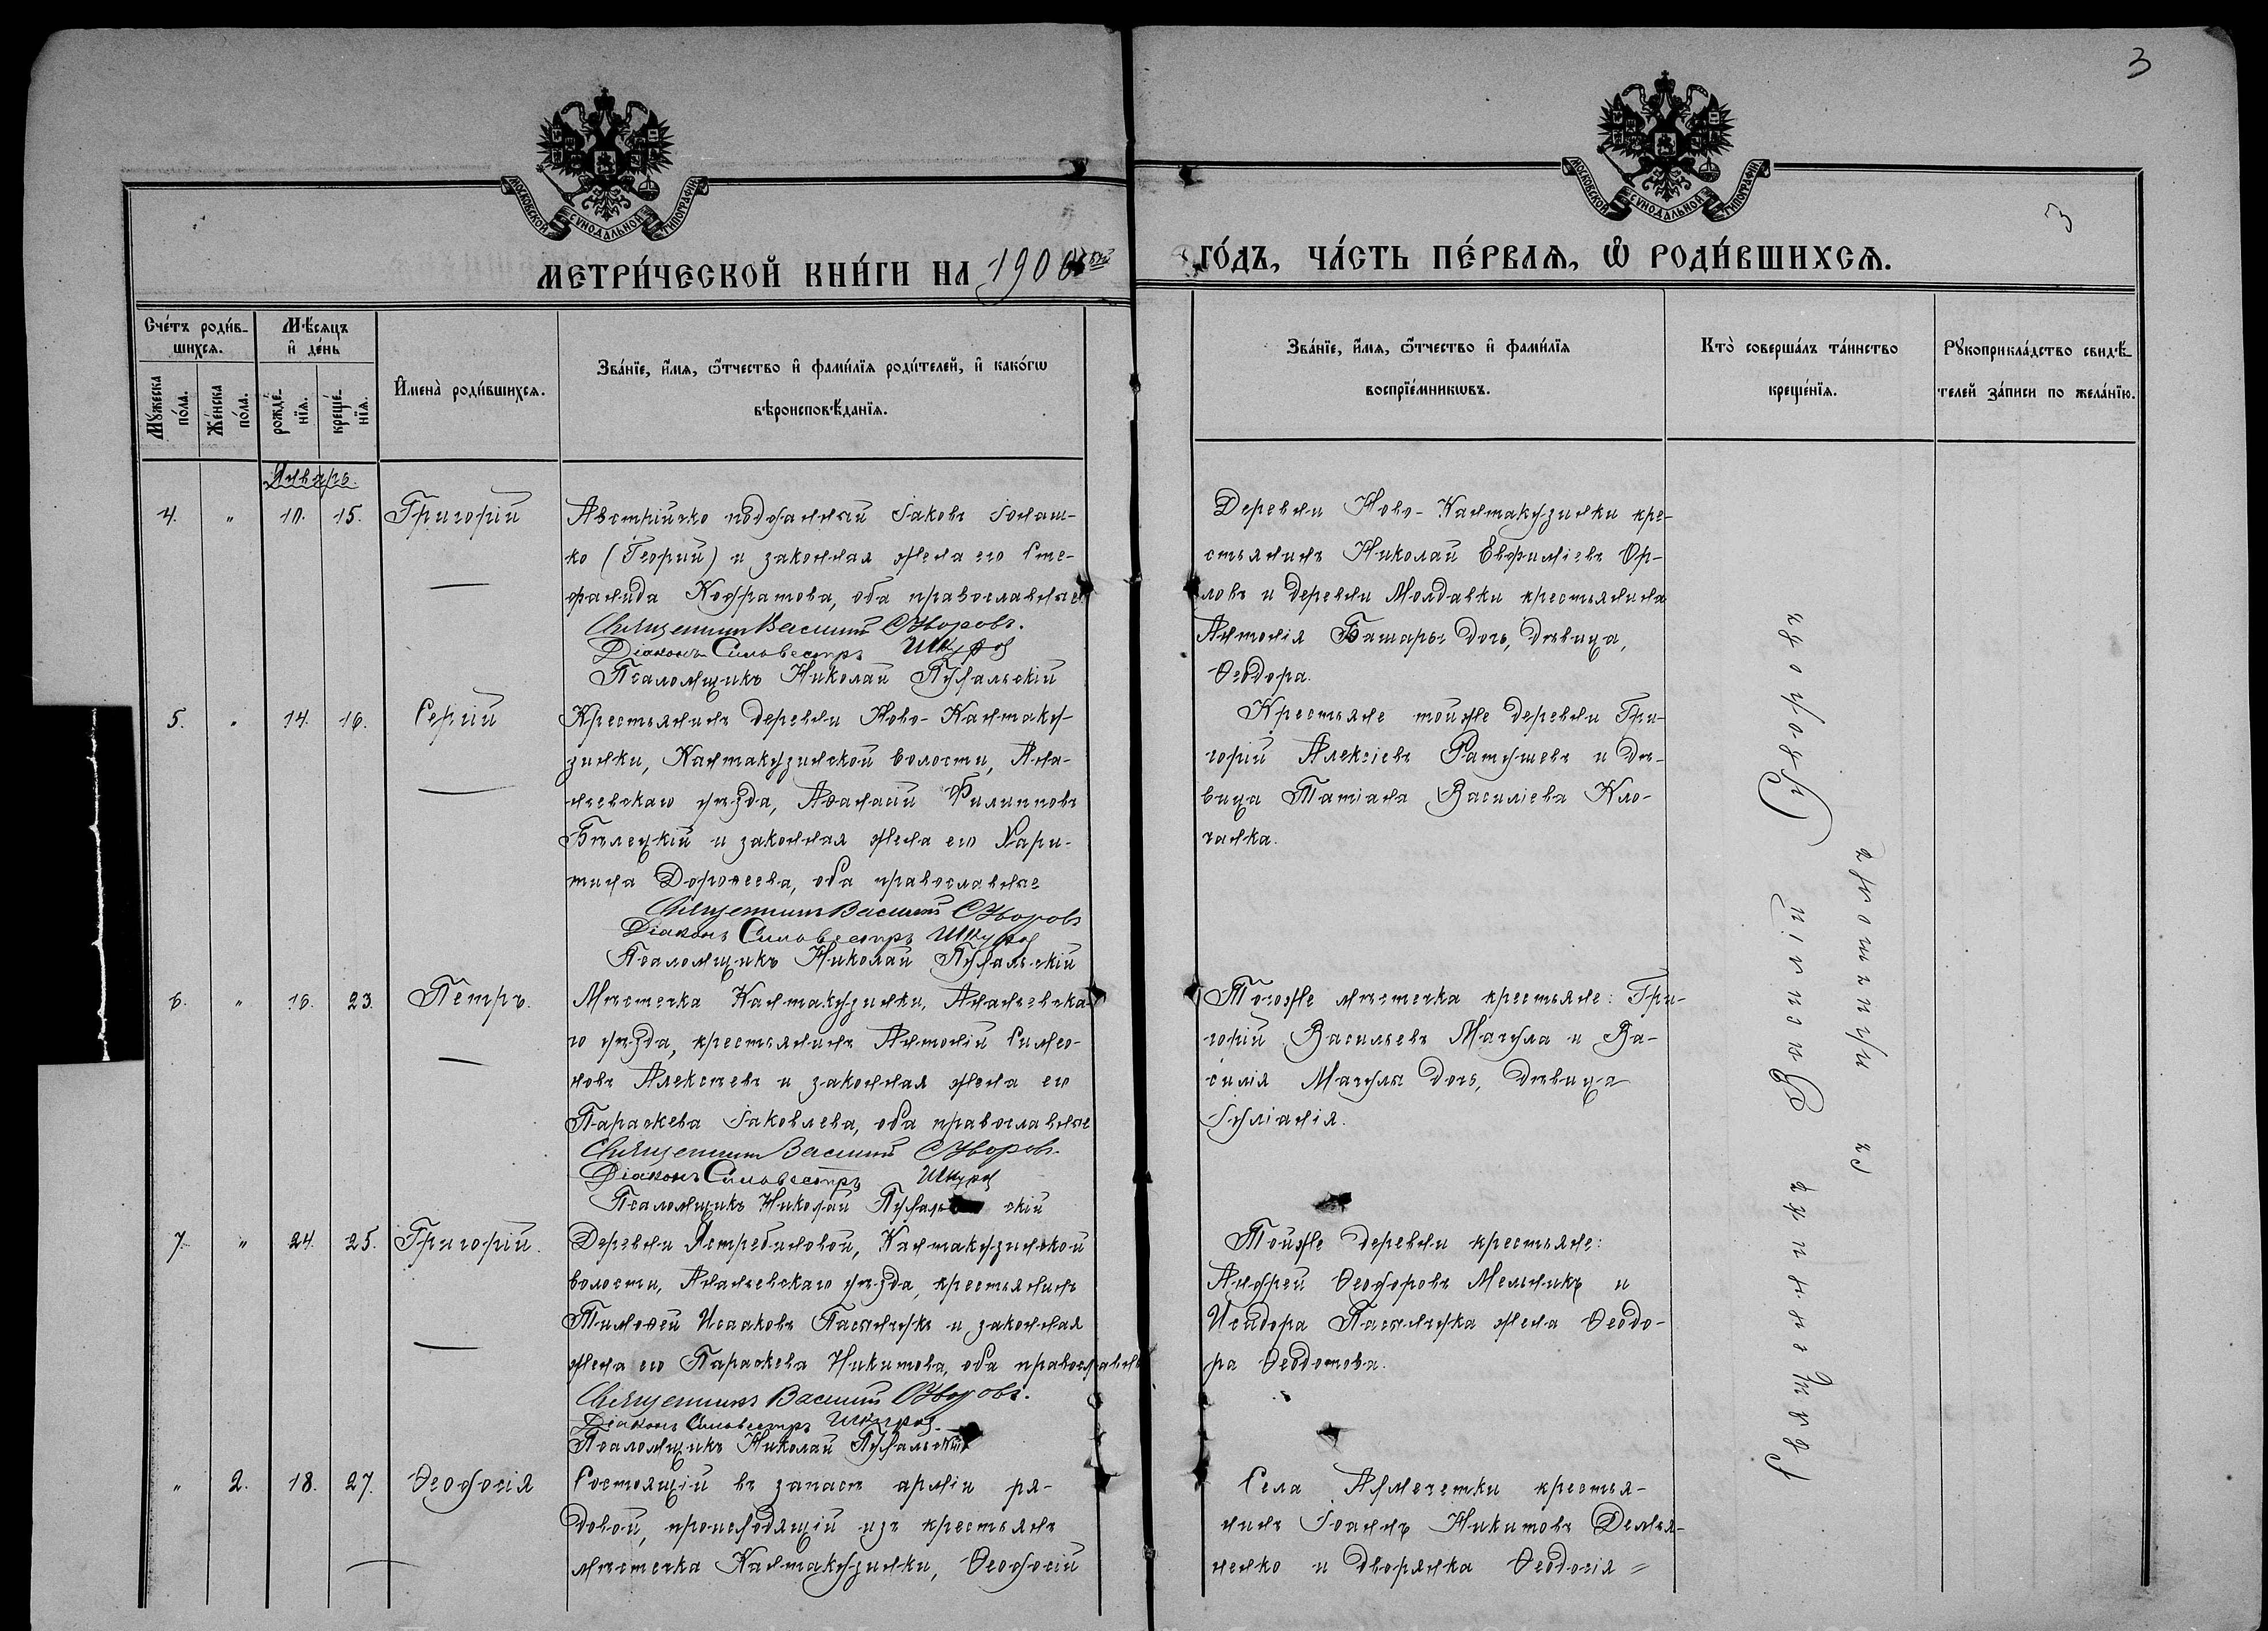 3
МОСКОВСКОЙ СУНОДАЛЬНОЙ ТИПОГРАФІИ
МОСКОВСКОЙ СУНОДАЛЬНОЙ ТИПОГРАФІИ
3
МЕТРИ́ЧЕСКОЙ КНИ́ГИ НА 190
ГО́ДЪ, ЧА́СТЬ ПЕ́РВАѦ, Ѡ҆ РОДИ́ВШИХСѦ.
Сче́тъ роди́в-
шихсѧ.
Мꙋ́жеска по́ла.
Же́нска по́ла.
Мѣ́сѧцъ
и҆ де́нь
рожде́-
нїѧ.
креще́-
нїѧ.
И҆мена̀ роди́вшихсѧ.
Зва́нїе, и҆́мѧ, ѻ҆́тчество и҆ фами́лїѧ роди́телей, и҆ како́гѡ
вѣроисповѣ́данїѧ.
Зва́нїе, и҆́мѧ, ѻ҆́тчество и҆ фами́лїѧ
воспрїе́мникѡвъ.
Кто̀ соверша́лъ та́инство
креще́нїѧ.
Рꙋкоприкла́дство свидѣ́-
телей за́писи по жела́нїю.
Январь.
4. " 10. 15. Григорій
Австрійско подданный Іаковъ Іонаш-
ко (Георгій) и законная жена его Сте-
фанида Кодратова, оба православные
Священникъ Василій Суворовъ.
Діаконъ Сильвестръ
Псаломщикъ Николай
Деревни Ново-Кантакузинки кре-
стьянинъ Николай Евфиміевъ Ор-
ловъ и деревни Молдавки крестьянина
Антонія Башары дочь, дѣвица,
Ѳеодора.
5. " 14. 16. Сергій
Крестьянинъ деревни Ново-Кантаку-
зинки, Кантакузинской волости, Ана-
ньевскаго уѣзда, Аѳанасій Филипповъ
Бѣлецкій и законная жена его Хари-
тина Дороѳеева, оба православные
Священникъ Василій Суворовъ
Діаконъ Сильвестръ
Псаломщикъ Николай
Крестьяне тойже деревни Гри-
горій Алексіевъ Ратушевъ и дѣ-
вица Татіана Василіева Кло-
чанка.
6. " 16. 23. Петръ.
Мѣстечка Кантакузинки, Ананьевска-
го уѣзда, крестьянинъ Антоній Симео-
новъ Алексѣевъ и законная жена его
Параскева Іаковлева, оба православные
Священникъ Василій Суворовъ.
Діаконъ Сильвестръ
Псаломщикъ Николай
Тогоже мѣстечка крестьяне: Гри-
горій Васильевъ Мачула и Ва-
силія Мачулы дочь, дѣвица
Іуліанія.
7. " 24. 25. Григорій.
Деревни Ястребиновой, Кантакузинской
волости, Ананьевскаго уѣзда, крестьянинъ
Тимоѳей Исааковъ Пасынчукъ и законная
жена его Параскева Никитова, оба православн.
Священникъ Василій Суворовъ.
Діаконъ Сильвестръ
Псаломщикъ Николай
Тойже деревни крестьяне:
Андрей Ѳеодоровъ Мельникъ и
Исидора Пасынчука жена Ѳеодо-
ра Ѳеодотова.
" 2. 18. 27. Ѳеодосія
Состоящій въ запасѣ арміи ря-
довой, происходящій изъ крестьянъ
мѣстечка Кантакузинки, Ѳеодосій
Села Армечетки крестья-
нинъ Іоаннъ Никитовъ Демья-
ненко и дворянка Ѳеодосія =
Священникъ Василій Суворовъ
съ причтомъ